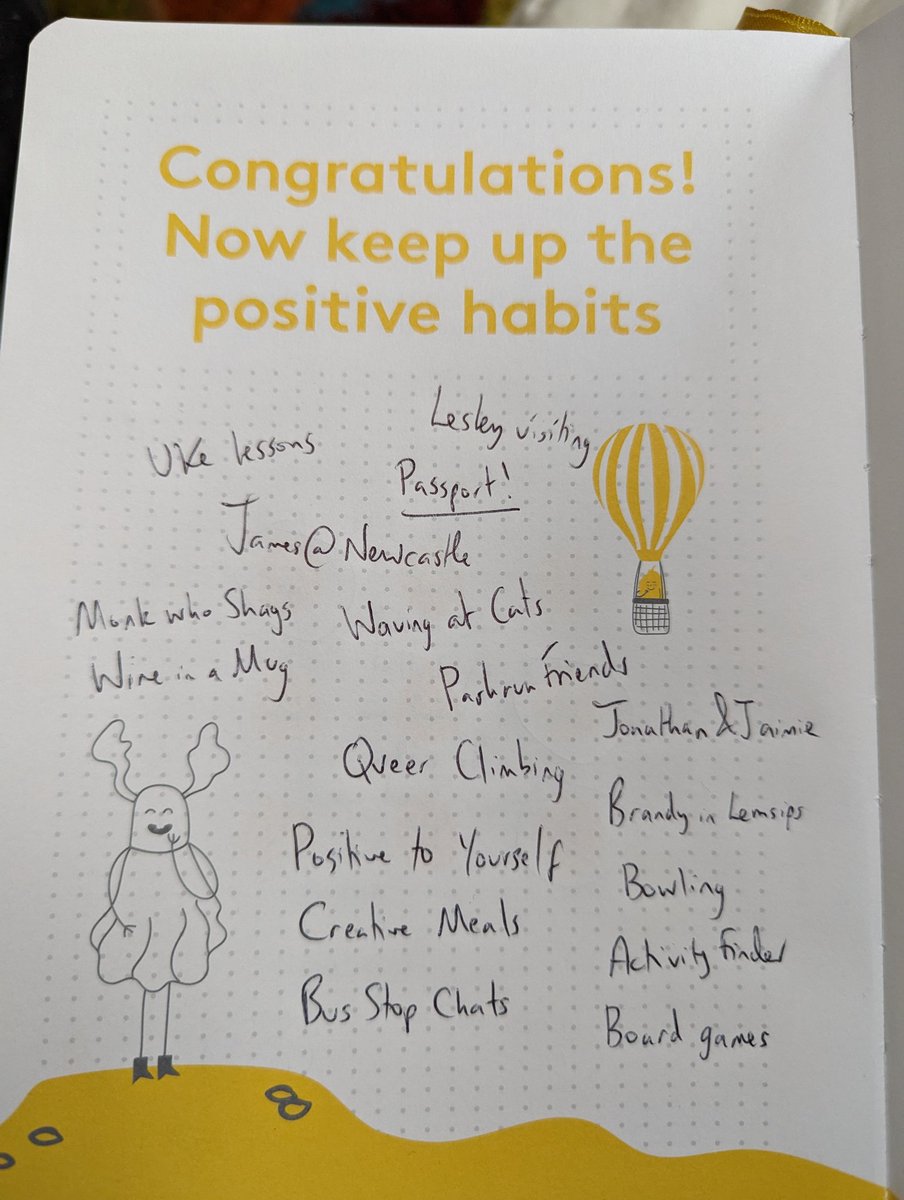 Congratulations!
Now keep up the
positive habits
Lesley visiting
Uke lessons
Passport!
James@Newcastle
Monk who Shags
Waving at Cats
Wine in a Mug
Parkrun friends
Jonathan & Jaimie
Queer Climbing
Brandy in Lemsips
Positive to Yourself
Bowling
Creative Meals
Activity finder
Bus Stop Chats
Board games